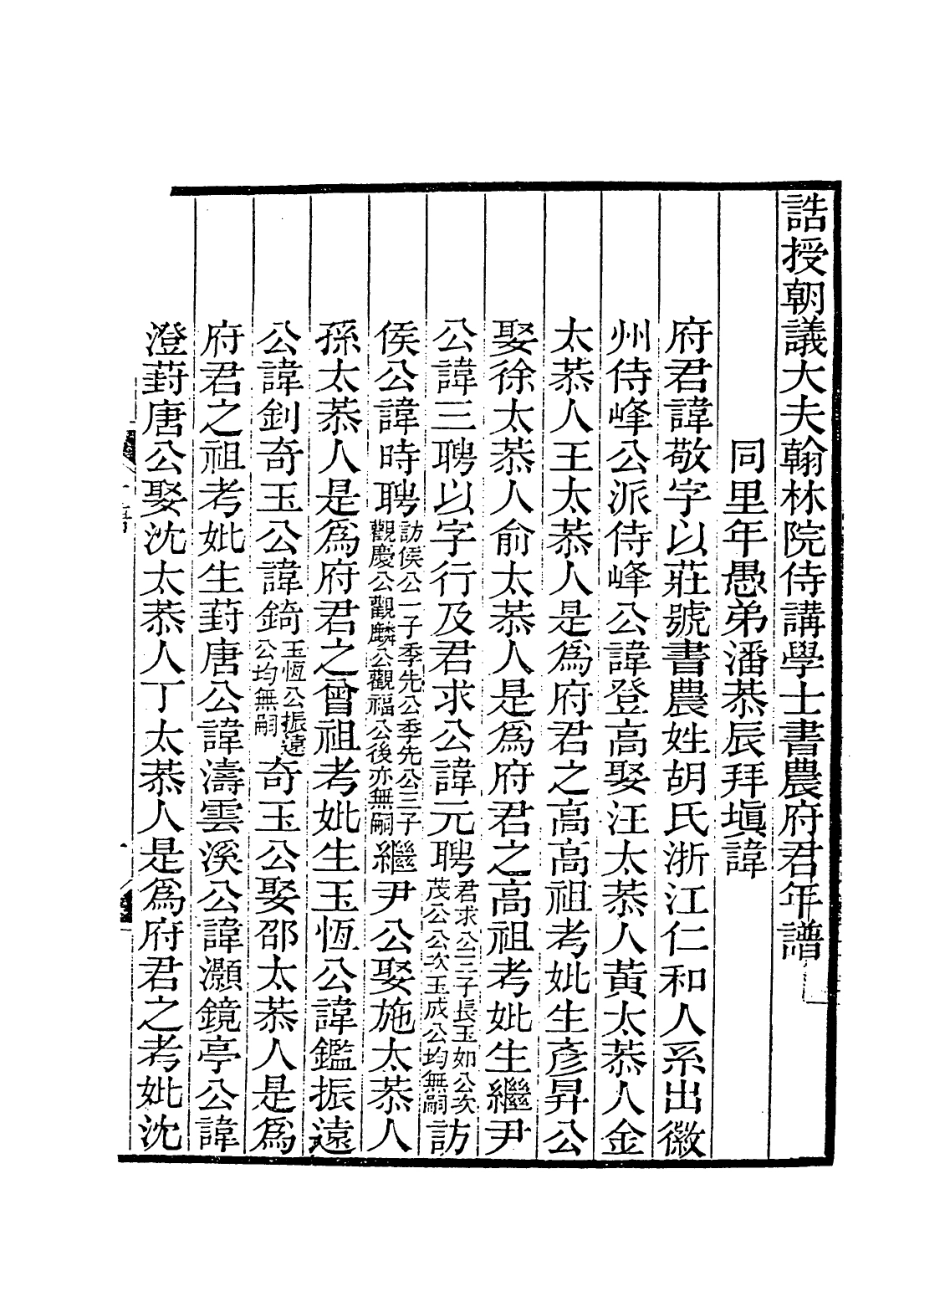 誥授朝議大夫翰林院侍講學士書農府君年譜
同里年愚弟潘恭辰拜塡諱
府君諱敬字以莊號書農姓胡氏浙江仁和人系出徽
州侍峰公派侍峰公諱登高娶汪太恭人黃太恭人金
太恭人王太恭人是爲府君之高高祖考妣生彥昇公
娶徐太恭人俞太恭人是爲府君之高祖考妣生繼尹
公諱三聘以字行及君求公諱元聘君求公三子長玉如公次茂公公次玉成公均無嗣訪
侯公諱時聘訪侯公一子季先公季先公三子觀慶公觀麟公觀福公後亦無嗣繼尹公娶施太恭人
孫太恭人是爲府君之曾祖考妣生玉恆公諱鑑振遠
公諱釗奇玉公諱錡玉恆公振遠公均無嗣奇玉公娶邵太恭人是爲
府君之祖考妣生葑唐公諱濤雲溪公諱灝鏡亭公諱
澄葑唐公娶沈太恭人丁太恭人是爲府君之考妣沈